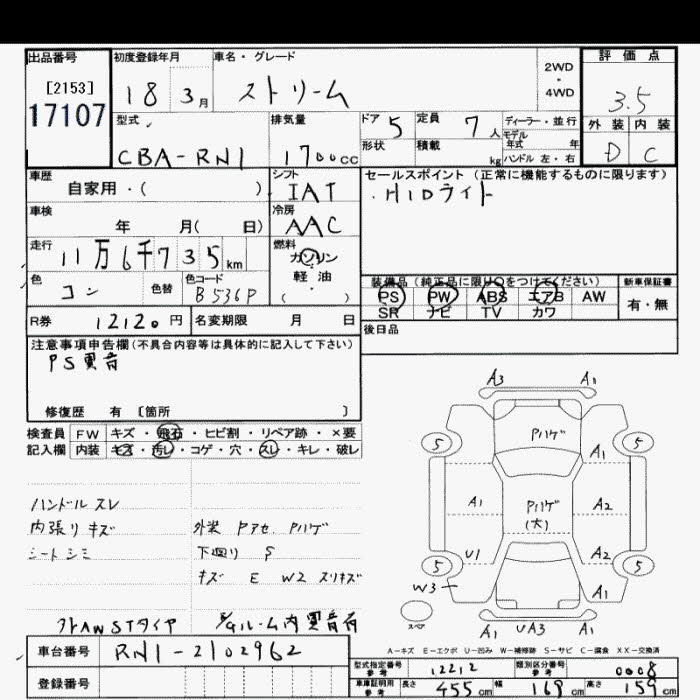 出品番号 初度登録年月 車名・グレード 2WD・4WD 評価点
[2153] 18 3月 ストリーム 3.5
17107 型式 排気量 ドア 5 定員 7人 ディーラー・並行 外装 内装
モデル年式 年
CBA-RN1 1700cc 形状 積載 kg ハンドル 左・右 D C
車歴 シフト セールスポイント (正常に機能するものに限ります)
自家用・( ) IAT ・HIDライト
車検 冷房
年 月( 日) AAC
走行 燃料
11万6千735km ガソリン
色 色替 色コード 軽油 装備品 (純正品に限り○をつけてください) 新車保証書
コン B536P ( ・ ) PS PW ABS エアB AW 有・無
SR ナビ TV カワ
R券 12120円 名変期限 月 日 後日品
注意事項申告欄(不具合内容等は具体的に記入して下さい)
PS異音
修復歴 有 [箇所 ]
検査員 FW キズ・飛石・ヒビ割・リペア跡・×要
記入欄 内装 キズ・汚レ・コゲ・穴・スレ・キレ・破レ
A3 A1
Pハゲ
5 5
A1
A1 Pハゲ A2
(大)
U1 A2
5 5
W3 A1
スペア
A1 UA3 A1
ハンドルスレ
内張りキズ 外装 Pアセ Pハゲ
シートシミ 下廻り S
キズ E W2 スリキズ
STタイヤ 内異音有
A-キズ E-エクボ U-凹み W-補修跡 S-サビ C-腐食 XX-交換済
車台番号 RN1-2102962
登録番号
型式指定番号 参考 12212 類別区分番号 参考 0008
車庫証明用 参考 長さ 455cm 幅 169cm 高さ 159cm